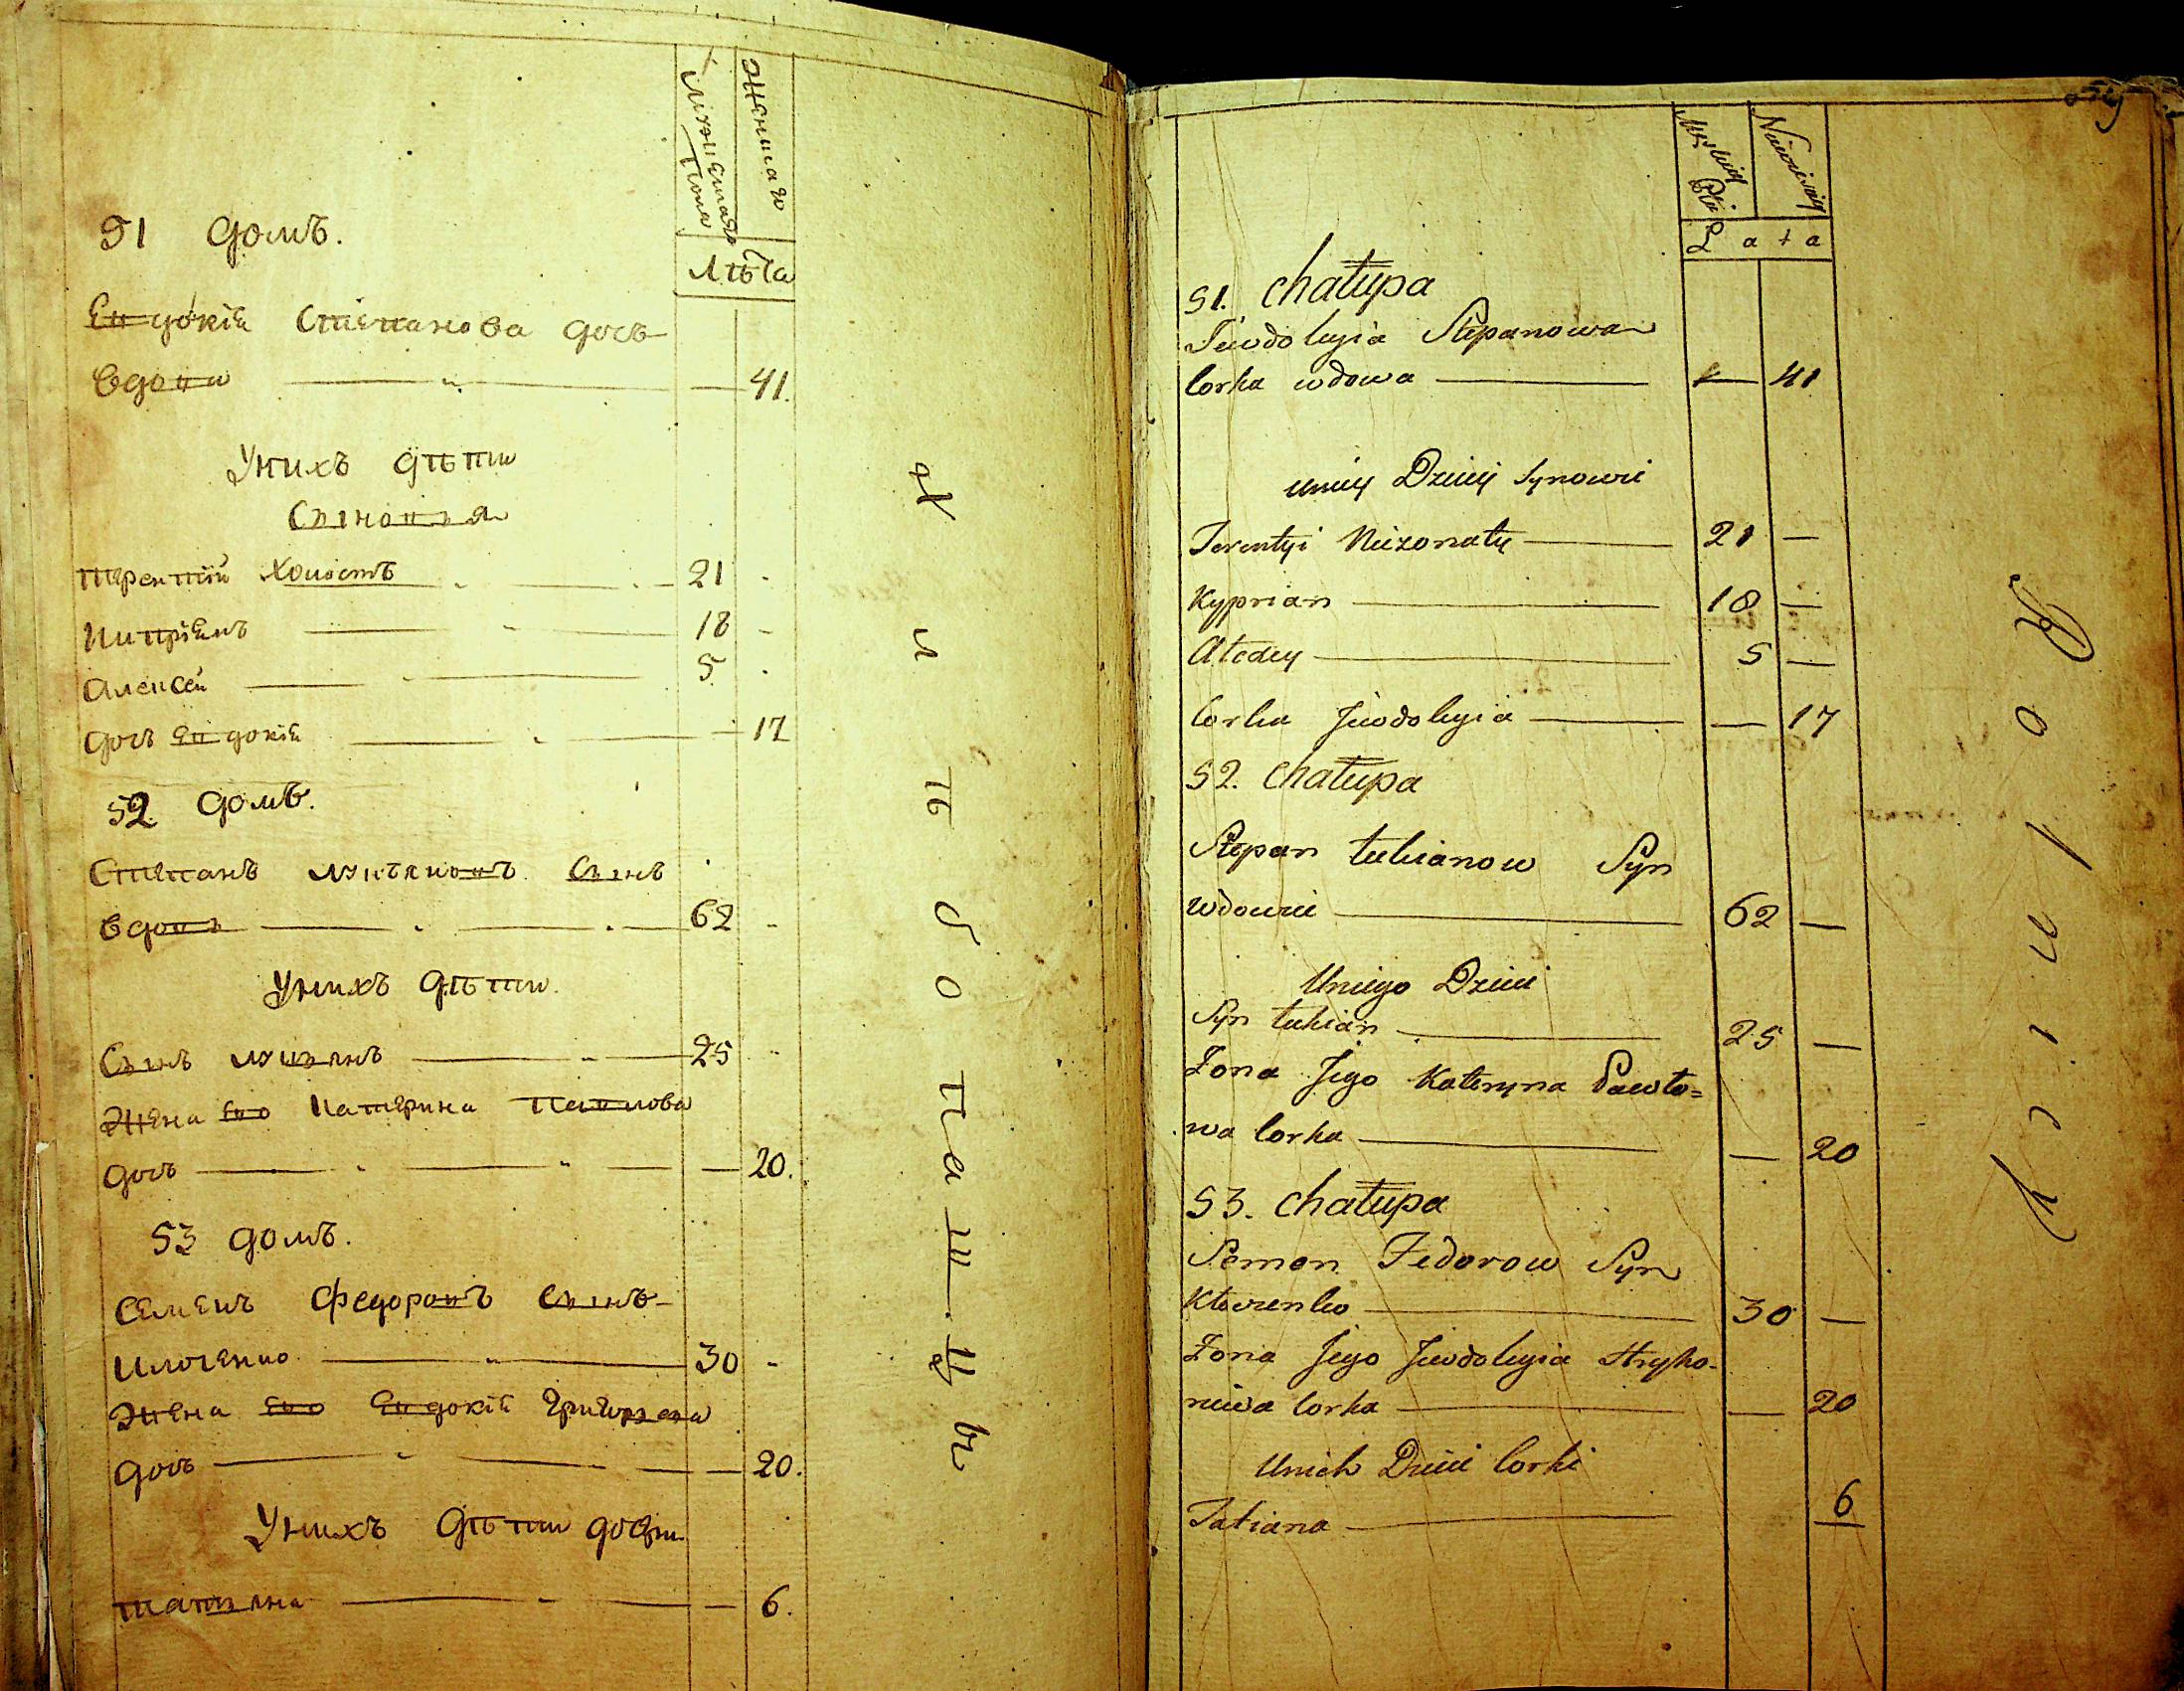 Мужеска Пола
Женска го
Лѣта
51 домъ.
Евдокіа Степанова дочъ
вдова 41.
У нихъ дѣти
Сыновья
Терентій холостъ 21
Кипріянъ 18
Алексей 5
дочъ Евдокіа 17
52 домъ.
Степанъ Лукъяновъ Сынъ
вдовъ 62
У нихъ дѣти.
Сынъ Лукьянъ 25
Жена его Катерина Павлова
дочъ 20.
53 домъ.
Семенъ Федоровъ Сынъ
Клоченко 30
Жена его Евдокіа Григорьева
дочъ 20.
У нихъ дѣти дочери
Татьяна 6.
Хлѣбопашцы
Męskiej Płci
Niewieściej
Lata
51. Chałupa
Jewdokyia Stepanowa
Corka wdowa — 41
U niey Dzieci Synowie
Terentyi Nieżonaty 21 —
Kyprian 18 —
Alexiey 5 —
Corka Jewdokyia — 17
52. Chałupa
Stepan Łukianow Syn
Wdowiec 62 —
U niego Dzieci
Syn Łukian 25 —
Żona Jego Kateryna Pawło=
wa Corka — 20
53. Chałupa
Semen Fedorow Syn
Kłoczenko 30 —
Żona Jego Jewdokyia Hryho-
riewa Corka — 20
U nich Dzieci Corki
Tatiana 6
Rolnicy